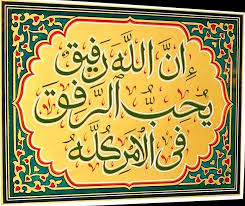 إِنَّ اللّٰهَ رَفِيقٌ
يُحِبُّ الرِّفْقَ
فِي الْأَمْرِ كُلِّهِ